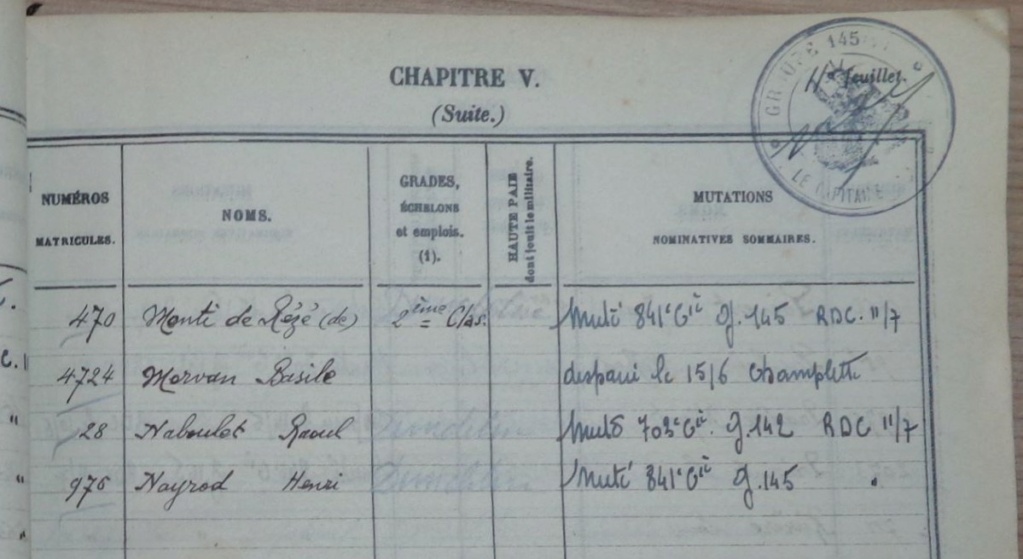 GROUPE 145
11e feuillet.
LE CAPITAINE
CHAPITRE V.
(Suite.)
NUMÉROS MATRICULES.
NOMS.
GRADES, ÉCHELONS et emplois. (1).
HAUTE PAIE dont jouit le militaire.
MUTATIONS NOMINATIVES SOMMAIRES.
470 Monti de Rézé (de) 2ème Clas. Muté 841e Cie G.145 RDC. 11/7
4724 Morvan Basile disparu le 15/6 Champlitte
" 28 Naboulet Raoul Muté 703e Cie. G.142 RDC 11/7
" 976 Nayrod Henri Muté 841e Cie G.145 "
"